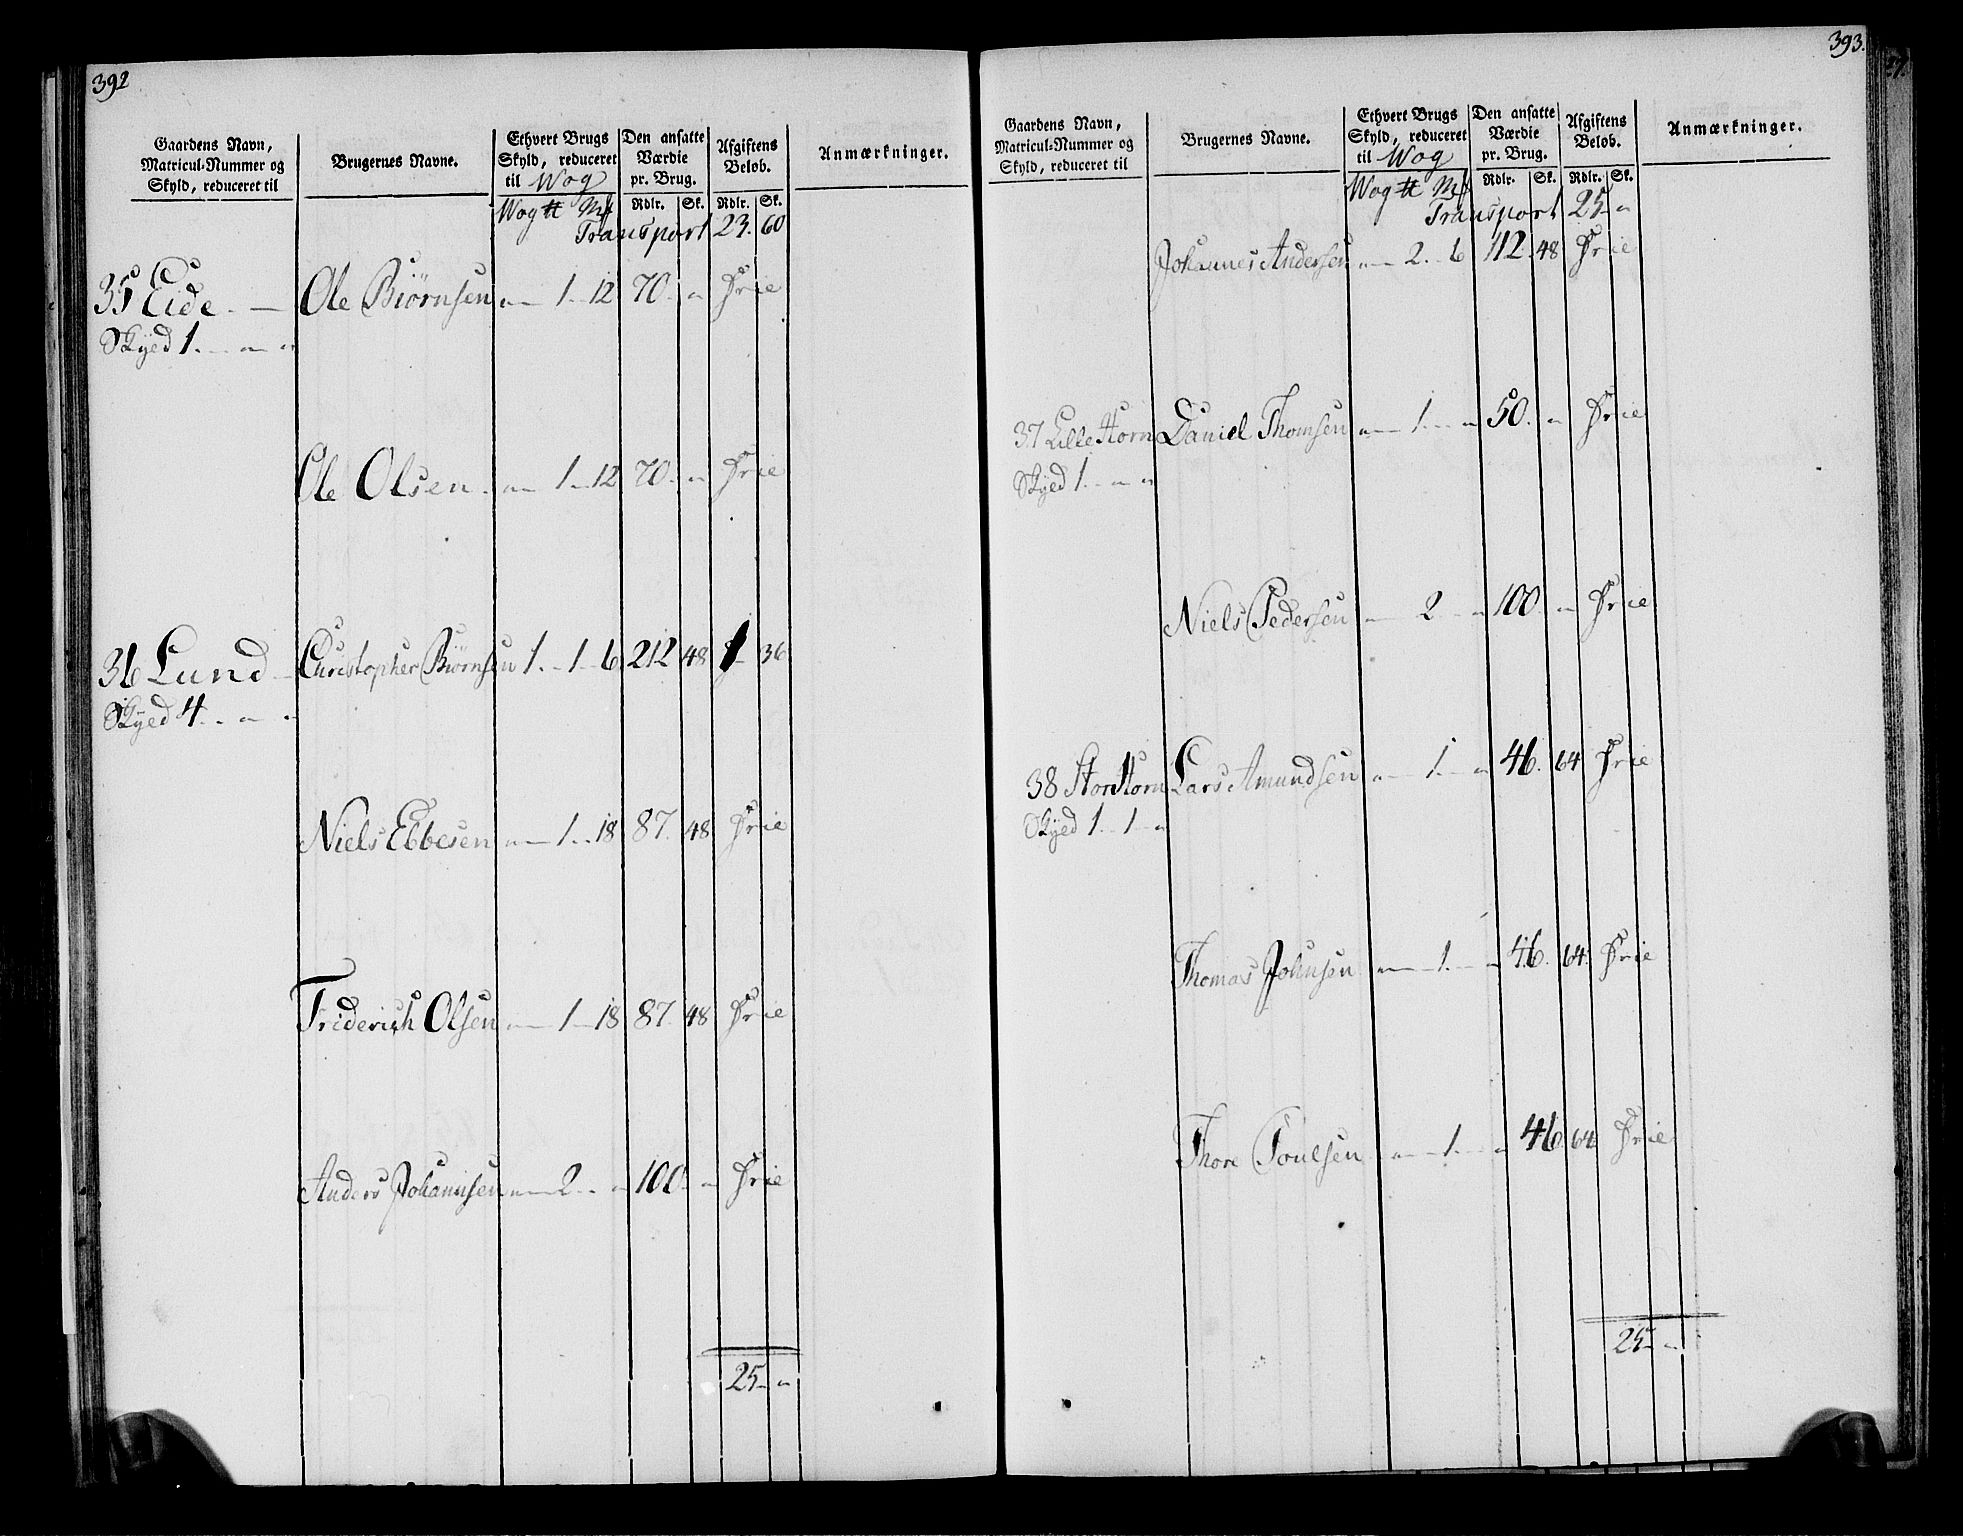 392
Gaardens Navn, Matricul-Nummer og Skyld, reduceret til | Brugernes Navne. | Ethvert Brugs Skyld, reduceret til Wog | Den ansatte Værdie pr. Brug. | Afgiftens Beløb. | Anmærkninger.
Wog ℔ Mk | Rdlr. | Sk. | Rdlr. | Sk.
Transport 23. 60
35 Eide. — Ole Biørnsen „ — 1 - 12 70. „ Frie
Skyld 1. - „ - „
Ole Olsen. „ — 1 - 12 70. „ Frie
36 Lund — Christopher Biørnsen 1. - 1 - 6 212 48 1 - 36
Skyld 4. - „ - „
Niels Ebbesen „ — 1 - 18 87. 48 Frie
Friderich Olsen „ — 1 - 18 87. 48 Frie
Anders Johannsen „ — 2 - „ 100. „ Frie
25 - „
393.
Gaardens Navn, Matricul-Nummer og Skyld, reduceret til | Brugernes Navne. | Ethvert Brugs Skyld, reduceret til Wog | Den ansatte Værdie pr. Brug. | Afgiftens Beløb. | Anmærkninger.
Wog ℔ Mk | Rdlr. | Sk. | Rdlr. | Sk.
Transport 25 - „
Johannes Andersen „ — 2 - 6 112. 48 Frie
37 Lille Horn Daniel Thomsen „ — 1. - „ 50. „ Frie
Skyld 1. - „ - „
Niels Pedersen „ — 2 - „ 100. „ Frie
38 Stor Horn Lars Amundsen „ — 1. - „ 46. 64 Frie
Skyld 1 - 1 - „
Thomas Johnsen „ — 1. - „ 46. 64. Frie
Thore Poulsen „ — 1. - „ 46 64 Frie
25 - „